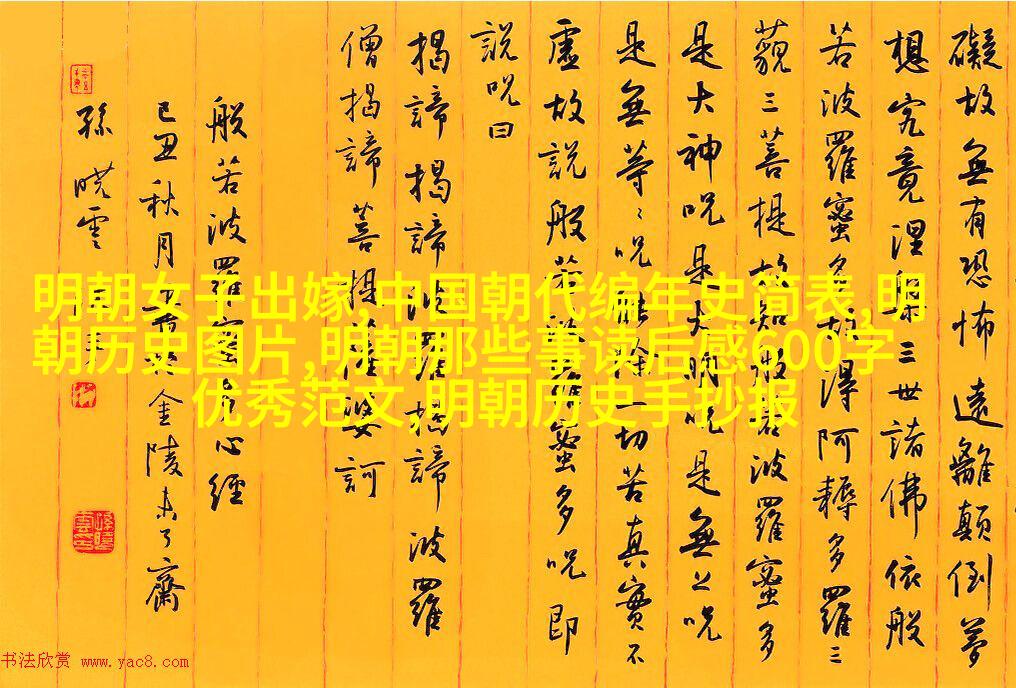 礙故無有恐怖遠離顛倒夢
想究竟涅槃三世諸佛依般
若波羅蜜多故得阿耨多羅三
藐三菩提故知般若波羅蜜多
是大神呪是大明呪是無上呪
是無等〻呪能除一切苦真實不
虛故說般若波羅蜜多呪即
說呪曰
揭諦揭諦波羅揭諦波羅
僧揭諦菩提薩婆訶
般若波羅蜜多心經
己丑秋月金陵未了齋
孫曉雲
明朝女子出嫁,中国朝代编年史简表,明
朝历史图片,明朝那些事读后感600字
优秀范文,明朝历史手抄报
书法欣赏 www.yac8.com